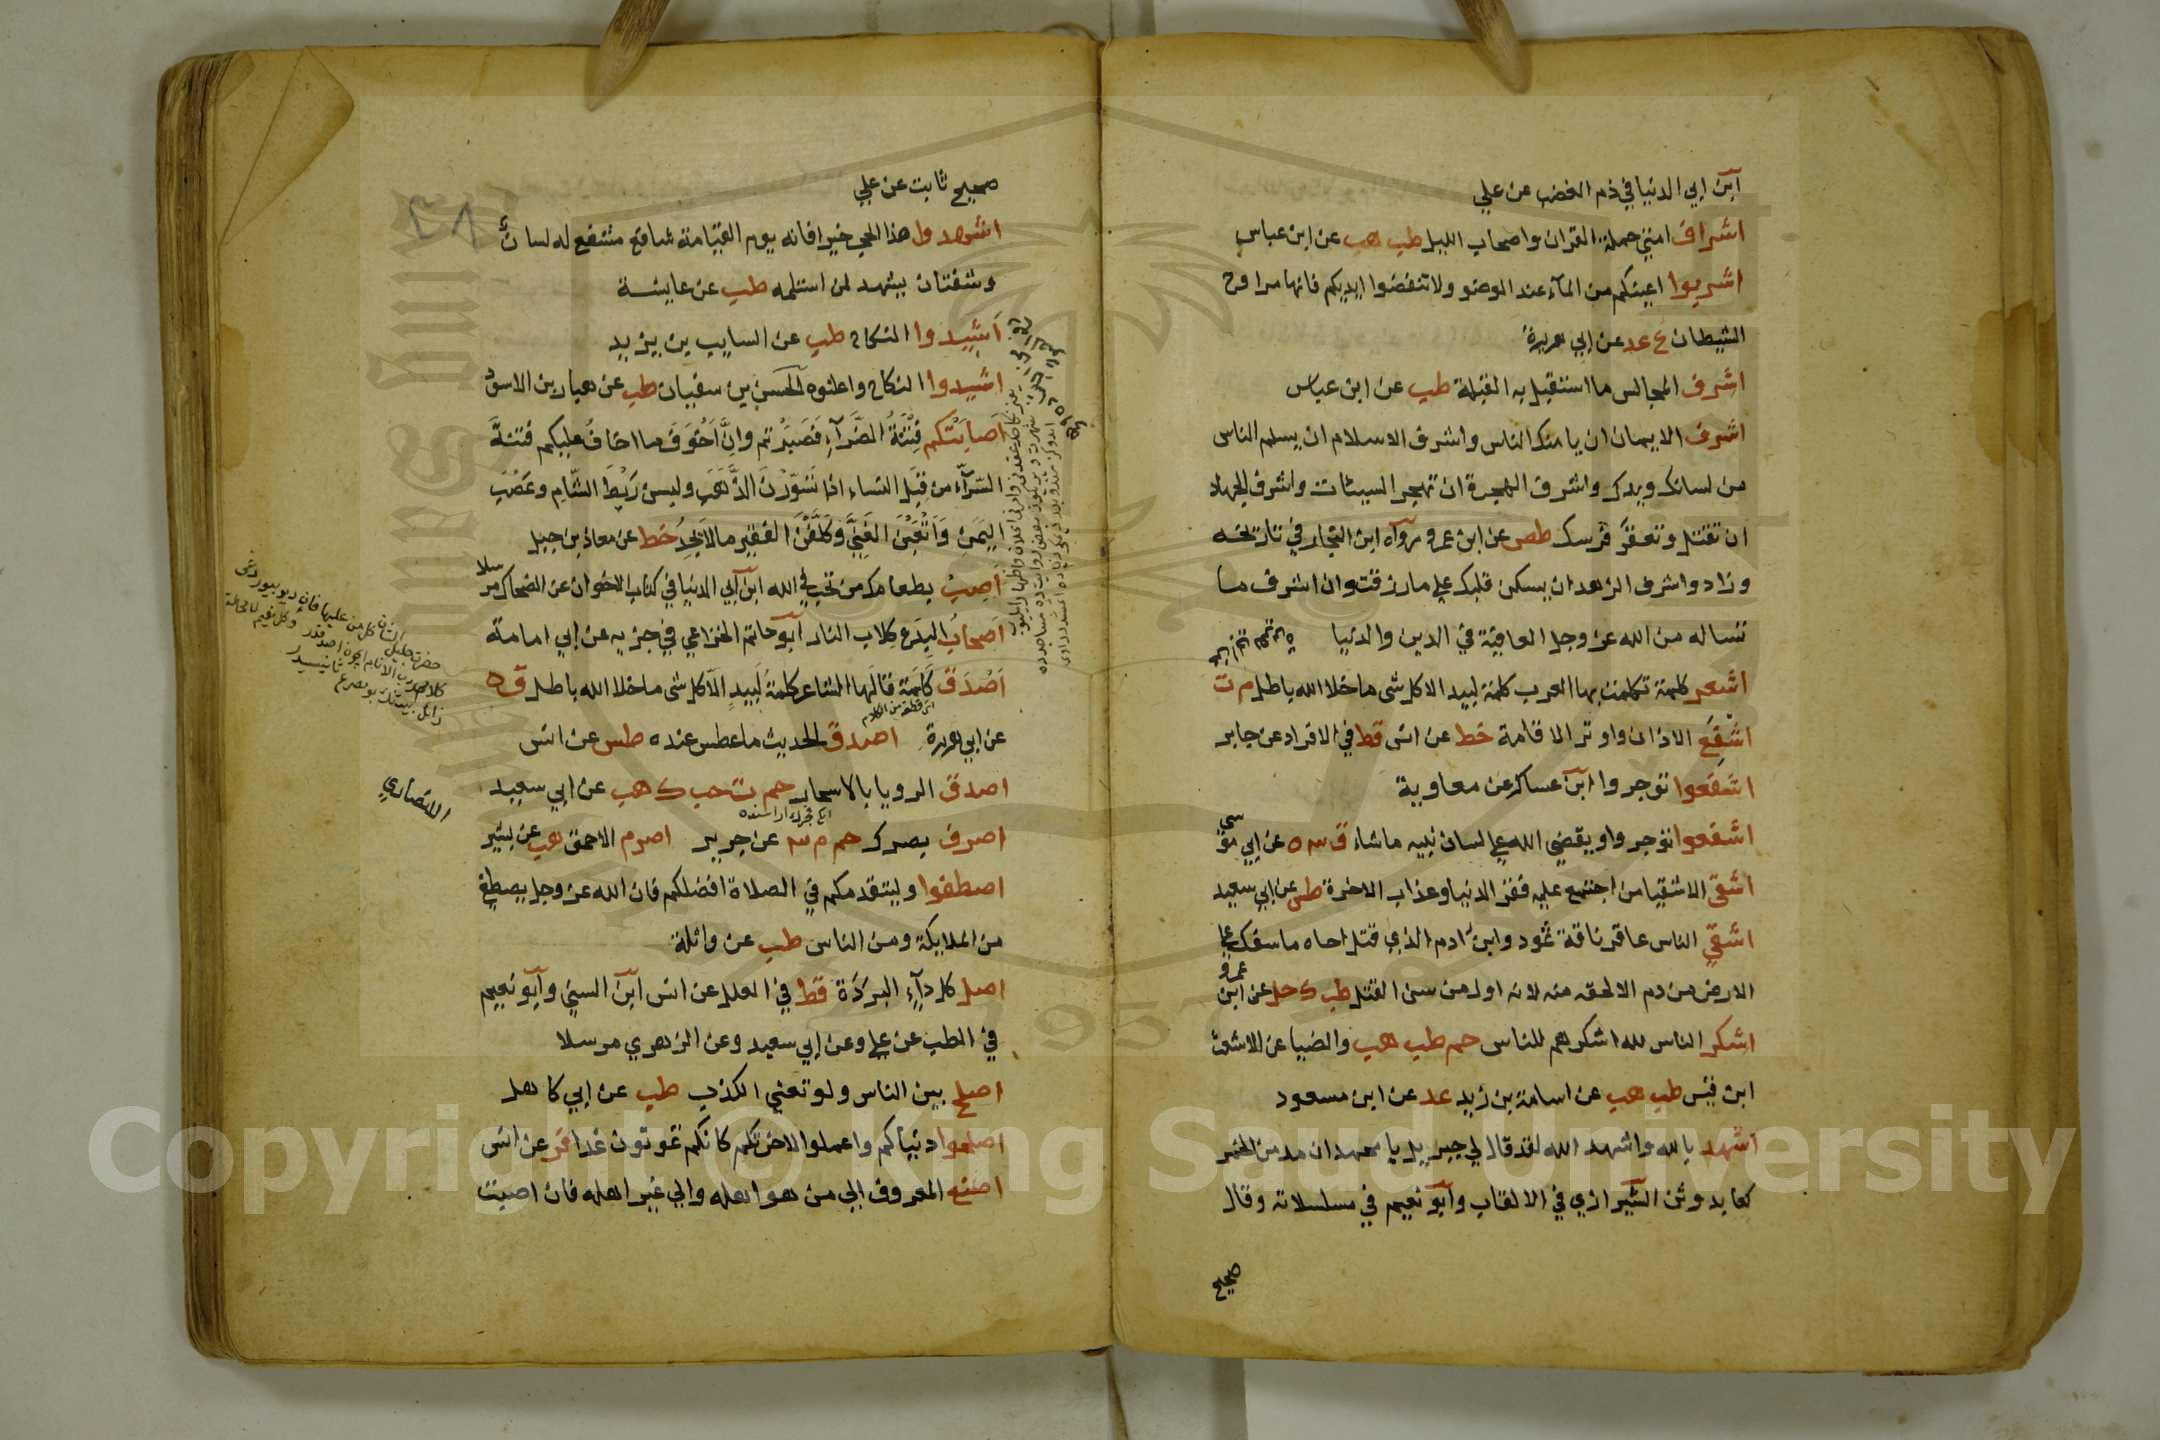 ابن ابي الدنيا في ذم الغضب عن علي
اشراف امتي حملة القران واصحاب الليل طب هب عن ابن عباس
اشربوا اعينكم من المآء عند الوضو ولا تنفضوا ايديكم فانها مراوح
الشيطان ع عد عن ابي هريرة
اشرف المجالس ما استقبل به القبلة طب عن ابن عباس
اشرف الايمان ان يامنك الناس واشرف الاسلام ان يسلم الناس
من لسانك ويدك واشرف الهجرة ان تهجر السيئات واشرف الجهاد
ان تقتل وتعقر فرسك طص عن ابن عمر ورواه ابن النجار في تاريخه
وزاد واشرف الزهد ان يسكن قلبك علي ما رزقت وان اشرف ما
تساله من الله عز وجل العافية في الدين والدنيا
اشعر كلمة تكلمت بها العرب كلمة لبيد الا كل شي ما خلا الله باطل م ت
اشفع الاذان واوتر الاقامة خط عن انس قط في الافراد عن جابر
اشفعوا توجروا ابن عساكر عن معاوية
اشفعوا توجروا ويقضي الله علي لسان نبيه ما شاء ق ٣ ه عن ابي موسي
اشقي الاشقيا من اجتمع عليه فقر الدنيا وعذاب الاخرة طس عن ابي سعيد
اشقي الناس عاقر ناقة ثمود وابن ادم الذي قتل اخاه ما سفك علي
الارض من دم الا لحقه منه لانه اول من سن القتل طب ك حل عن ابن عمرو
اشكر الناس لله اشكرهم للناس حم طب هب والضيا عن الاشعث
ابن قيس طب هب عن اسامة بن زيد عد عن ابن مسعود
اشهد بالله واشهد الله لقد قال لي جبريل يا محمد ان مدمن الخمر
كعابد وثن الشيرازي في الالقاب وابو نعيم في مسلسلاته وقال
صحيح
صحيح ثابت عن علي
اشهدوا هذا الحجر خيرا فانه يوم القيامة شافع مشفع له لسان
وشفتان يشهد لمن استلمه طب عن عايشة
اشيدوا النكاح طب عن السايب بن يزيد
اشيدوا النكاح واعلنوه الحسن بن سفيان طب عن هبار بن الاسود
اصابتكم فتنة الضرآء فصبرتم وان اخوف ما اخاف عليكم فتنة
السرآء من قبل النساء اذا تسورن الذهب ولبسن ريط الشام وعصب
اليمن واتعبن الغني وكلفن الفقير ما لا يجد خط عن معاذ بن جبل
اصب بطعامك من تحب في الله ابن ابي الدنيا في كتاب الاخوان عن الضحاك مرسلا
اصحاب البدع كلاب النار ابو حاتم الخزاعي في جزيه عن ابي امامة
اصدق كلمة قالها الشاعر كلمة لبيد الا كل شي ما خلا الله باطل ق ه
عن ابي هريرة اصدق الحديث ما عطس عنده طس عن انس
اصدق الرويا بالاسحار حم ت حب ك هب عن ابي سعيد
اصرف بصرك حم م ٣ عن جرير اصرم الاحمق هب عن بشير
الانصاري
اصطفوا وليتقدمكم في الصلاة افضلكم فان الله عز وجل يصطفي
من الملايكة ومن الناس طب عن واثلة
اصل كل دآء البردة قط في العلل عن انس ابن السني وابو نعيم
في الطب عن علي وعن ابي سعيد وعن الزهري مرسلا
اصلح بين الناس ولو تعني الكذب طب عن ابي كاهل
اصلحوا دنياكم واعملوا لاخرتكم كانكم تموتون غدا فر عن انس
اصنع المعروف الي من هو اهله والي غير اهله فان اصبت
Copyright © King Saud University
1957